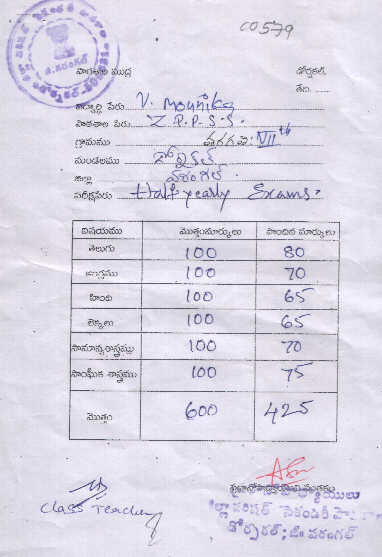 CO579
పాఠశాల ముద్ర డోర్నకల్,
తేది.
విద్యార్థి పేరు V. Mounika
పాఠశాల పేరు Z.P.P.S.S.
గ్రామము తరగతి: VIIth
మండలము డోర్నకల్
జిల్లా వరంగల్
పరీక్షపేరు Half yearly Exams.
విషయము మొత్తంమార్కులు పొందిన మార్కులు
తెలుగు 100 80
ఆంగ్లము 100 70
హింది 100 65
లెక్కలు 100 65
సామాన్యశాస్త్రము 100 70
సాంఘీక శాస్త్రము 100 75
మొత్తం 600 425
Class Teacher
జిల్లా పరిషత్ సెకండరీ
డోర్నకల్; జి. వరంగల్